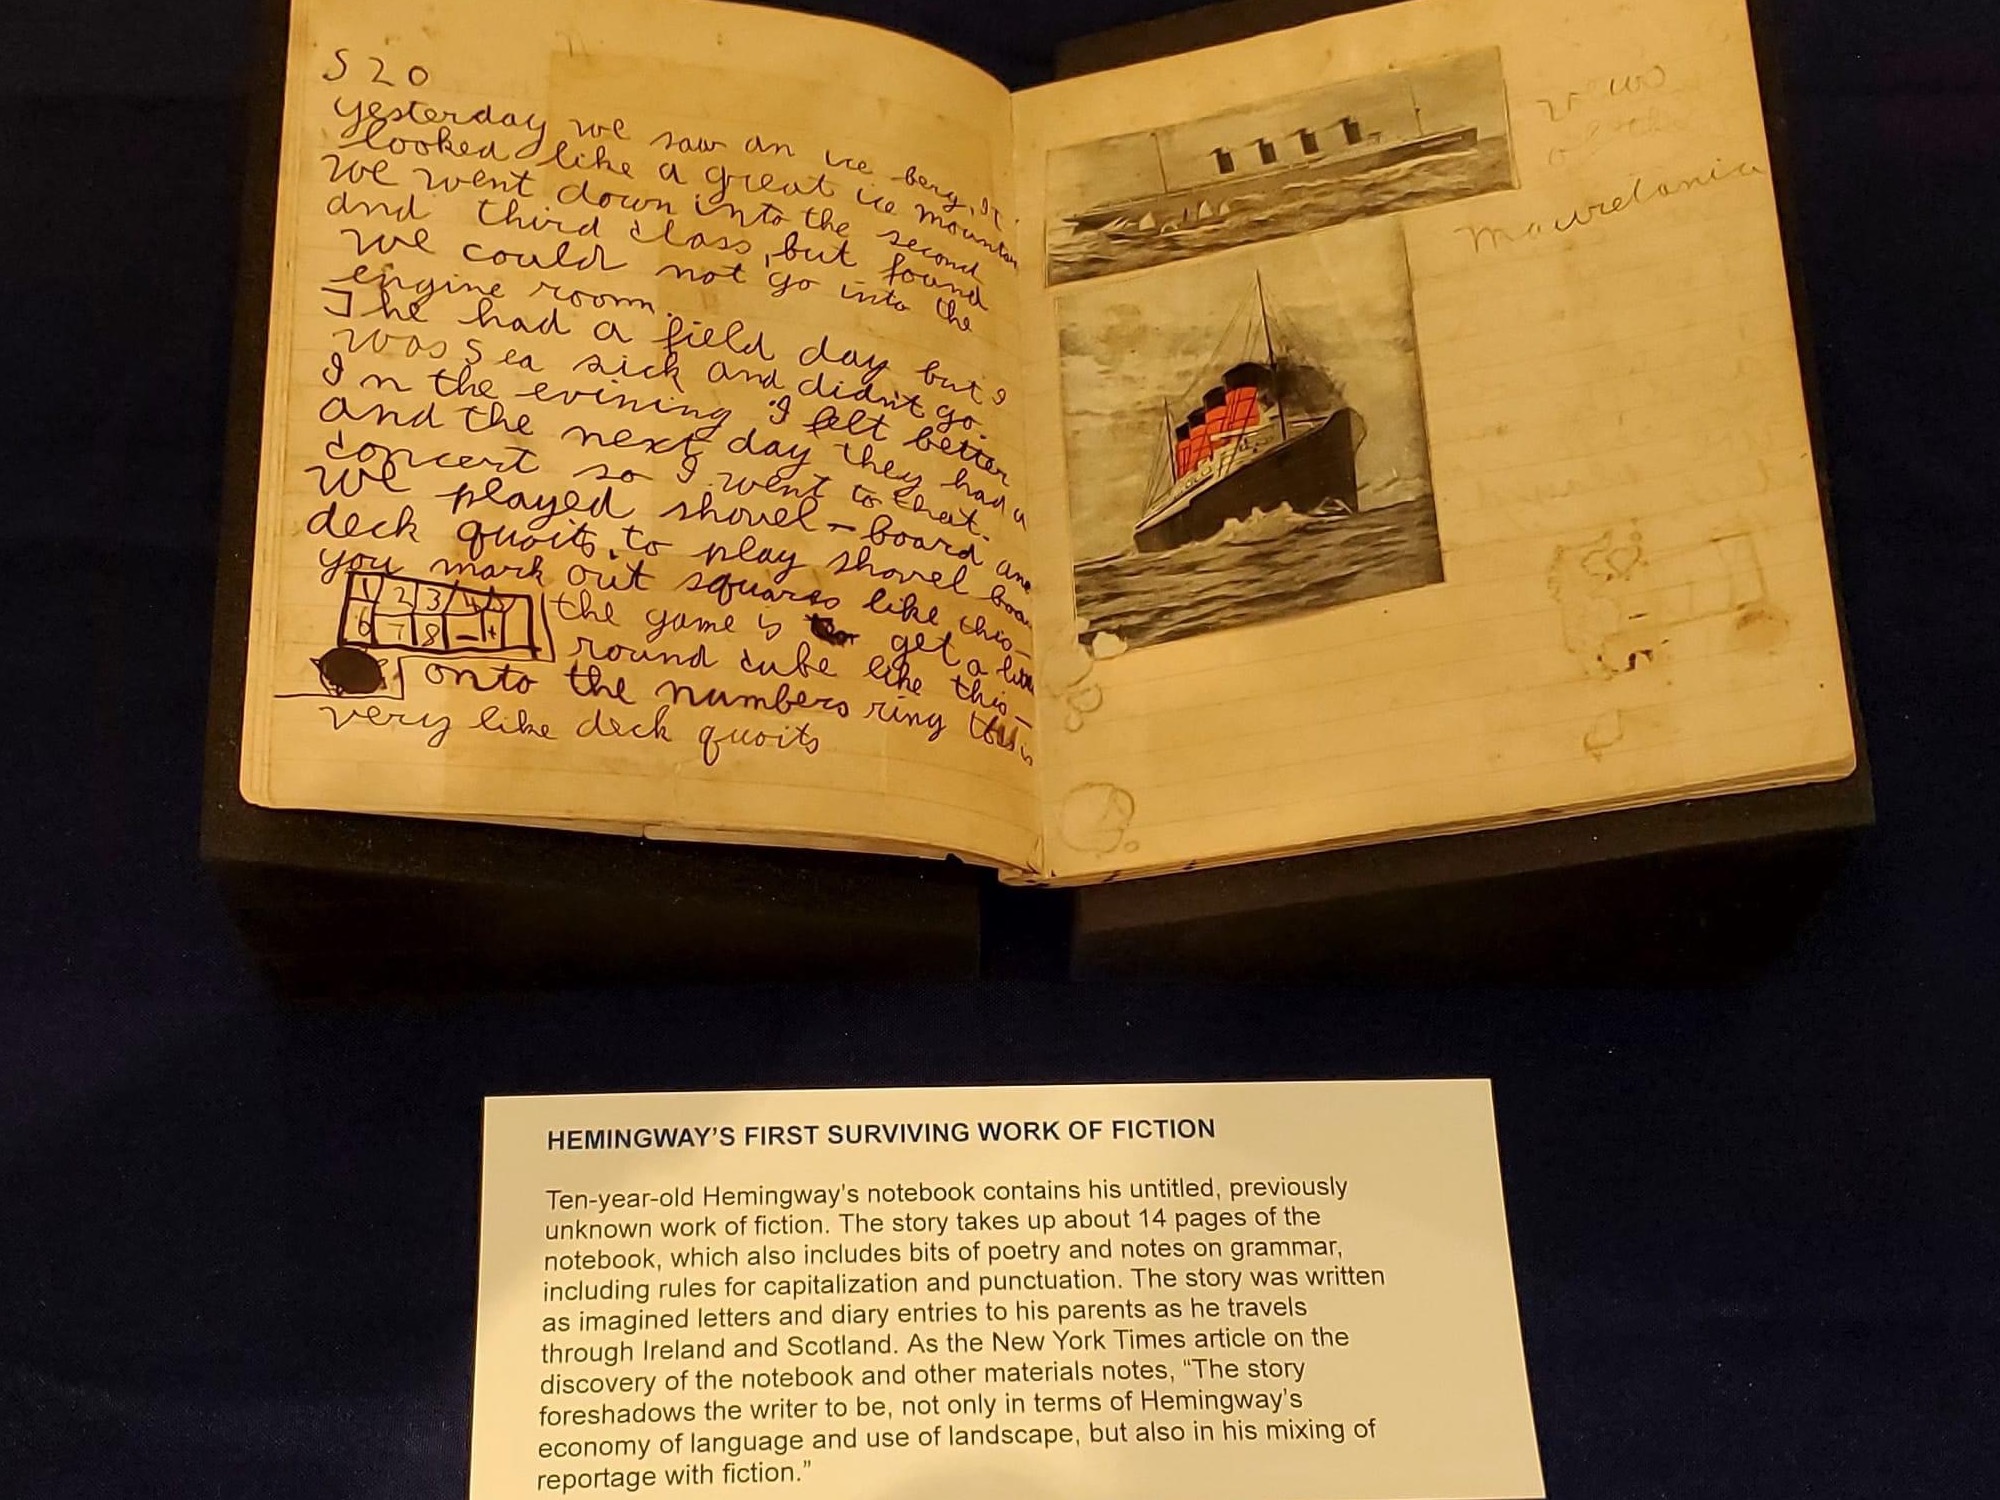 S 20
yesterday we saw an ice berg, It
looked like a great ice mountan
we went down into the second
and third class, but found
we could not go into the
engine room.
The had a field day but I
was sea sick and didn't go.
In the evining I felt better
and the next day they had a
concert so I went to that.
we played shovel-board and
deck quoits. to play shovel boar
you mark out squares like this-
1 2 3 4 5
6 7 8 - +
the game is get a little
round cube like this-
onto the numbers ring this is
very like deck quoits
views
of the
Mauretania
HEMINGWAY'S FIRST SURVIVING WORK OF FICTION
Ten-year-old Hemingway's notebook contains his untitled, previously
unknown work of fiction. The story takes up about 14 pages of the
notebook, which also includes bits of poetry and notes on grammar,
including rules for capitalization and punctuation. The story was written
as imagined letters and diary entries to his parents as he travels
through Ireland and Scotland. As the New York Times article on the
discovery of the notebook and other materials notes, “The story
foreshadows the writer to be, not only in terms of Hemingway's
economy of language and use of landscape, but also in his mixing of
reportage with fiction.”